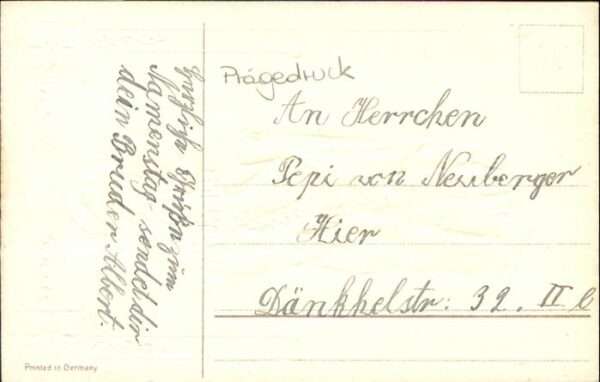 Herzlich Grüßn zum
Namenstag sendet dir
dein Bruder Albert.
Prägedruck
An Herrchen
Pepi von Neuberger
Hier
Dänkhelstr: 32. II
Printed in Germany